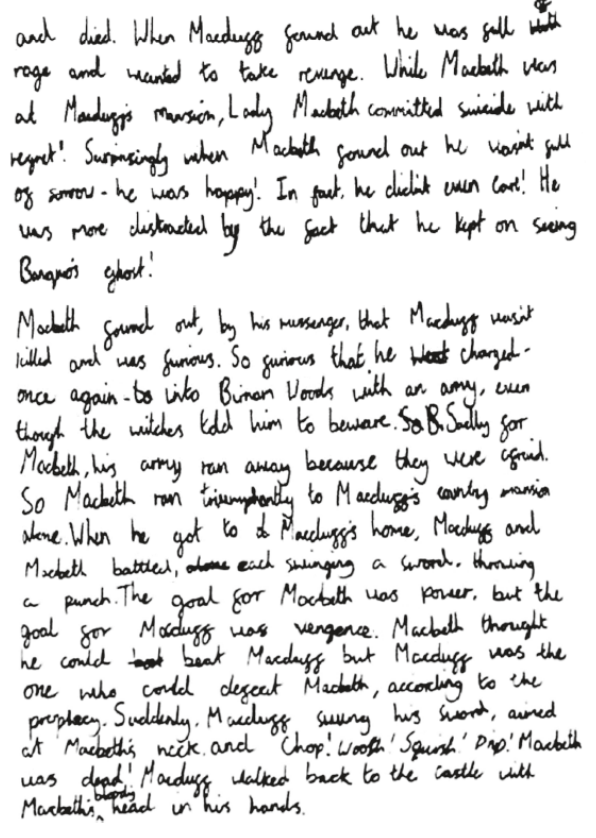 and died. When Macduff found out he was full of
rage and wanted to take revenge. While Macbeth was
at Macduff's mansion, Lady Macbeth committed suicide with
regret! Surprisingly when Macbeth found out he wasn't full
of sorrow - he was happy! In fact, he didn't even care! He
was more distracted by the fact that he kept on seeing
Banquo's ghost!
Macbeth found out, by his messenger, that Macduff wasn't
killed and was furious. So furious that he charged -
once again - to into Birnan Woods with an army, even
though the witches told him to beware. Sadly for
Macbeth, his army ran away because they were afraid.
So Macbeth ran triumphantly to Macduff's country mansion
alone. When he got to Macduff's home, Macduff and
Macbeth battled, each swinging a sword, throwing
a punch. The goal for Macbeth was power, but the
goal for Macduff was vengence. Macbeth thought
he could beat Macduff but Macduff was the
one who could defeat Macbeth, according to the
prophacy. Suddenly, Macduff swung his sword, aimed
at Macbeth's neck and Chop! Woosh! Squish! Drip! Macbeth
was dead! Macduff walked back to the castle with
Macbeth's bloody head in his hands.